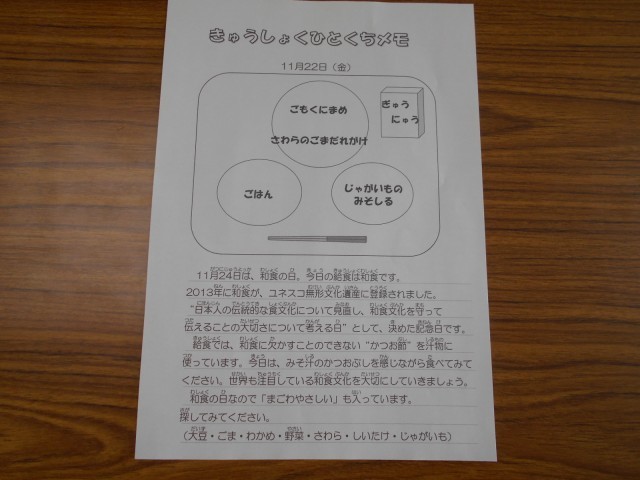 きゅうしょくひとくちメモ
11月22日（金）
ごもくにまめ
ぎゅう
にゅう
さわらのごまだれがけ
ごはん
じゃがいもの
みそしる
11月24日は、和食の日。今日の給食は和食です。
2013年に和食が、ユネスコ無形文化遺産に登録されました。
“日本人の伝統的な食文化について見直し、和食文化を守って
伝えることの大切さについて考える日”として、決めた記念日です。
給食では、和食に欠かすことのできない“かつお節”を汁物に
使っています。今日は、みそ汁のかつおぶしを感じながら食べてみて
ください。世界も注目している和食文化を大切にしていきましょう。
和食の日なので「まごわやさしい」も入っています。
探してみてください。
（大豆・ごま・わかめ・野菜・さわら・しいたけ・じゃがいも）